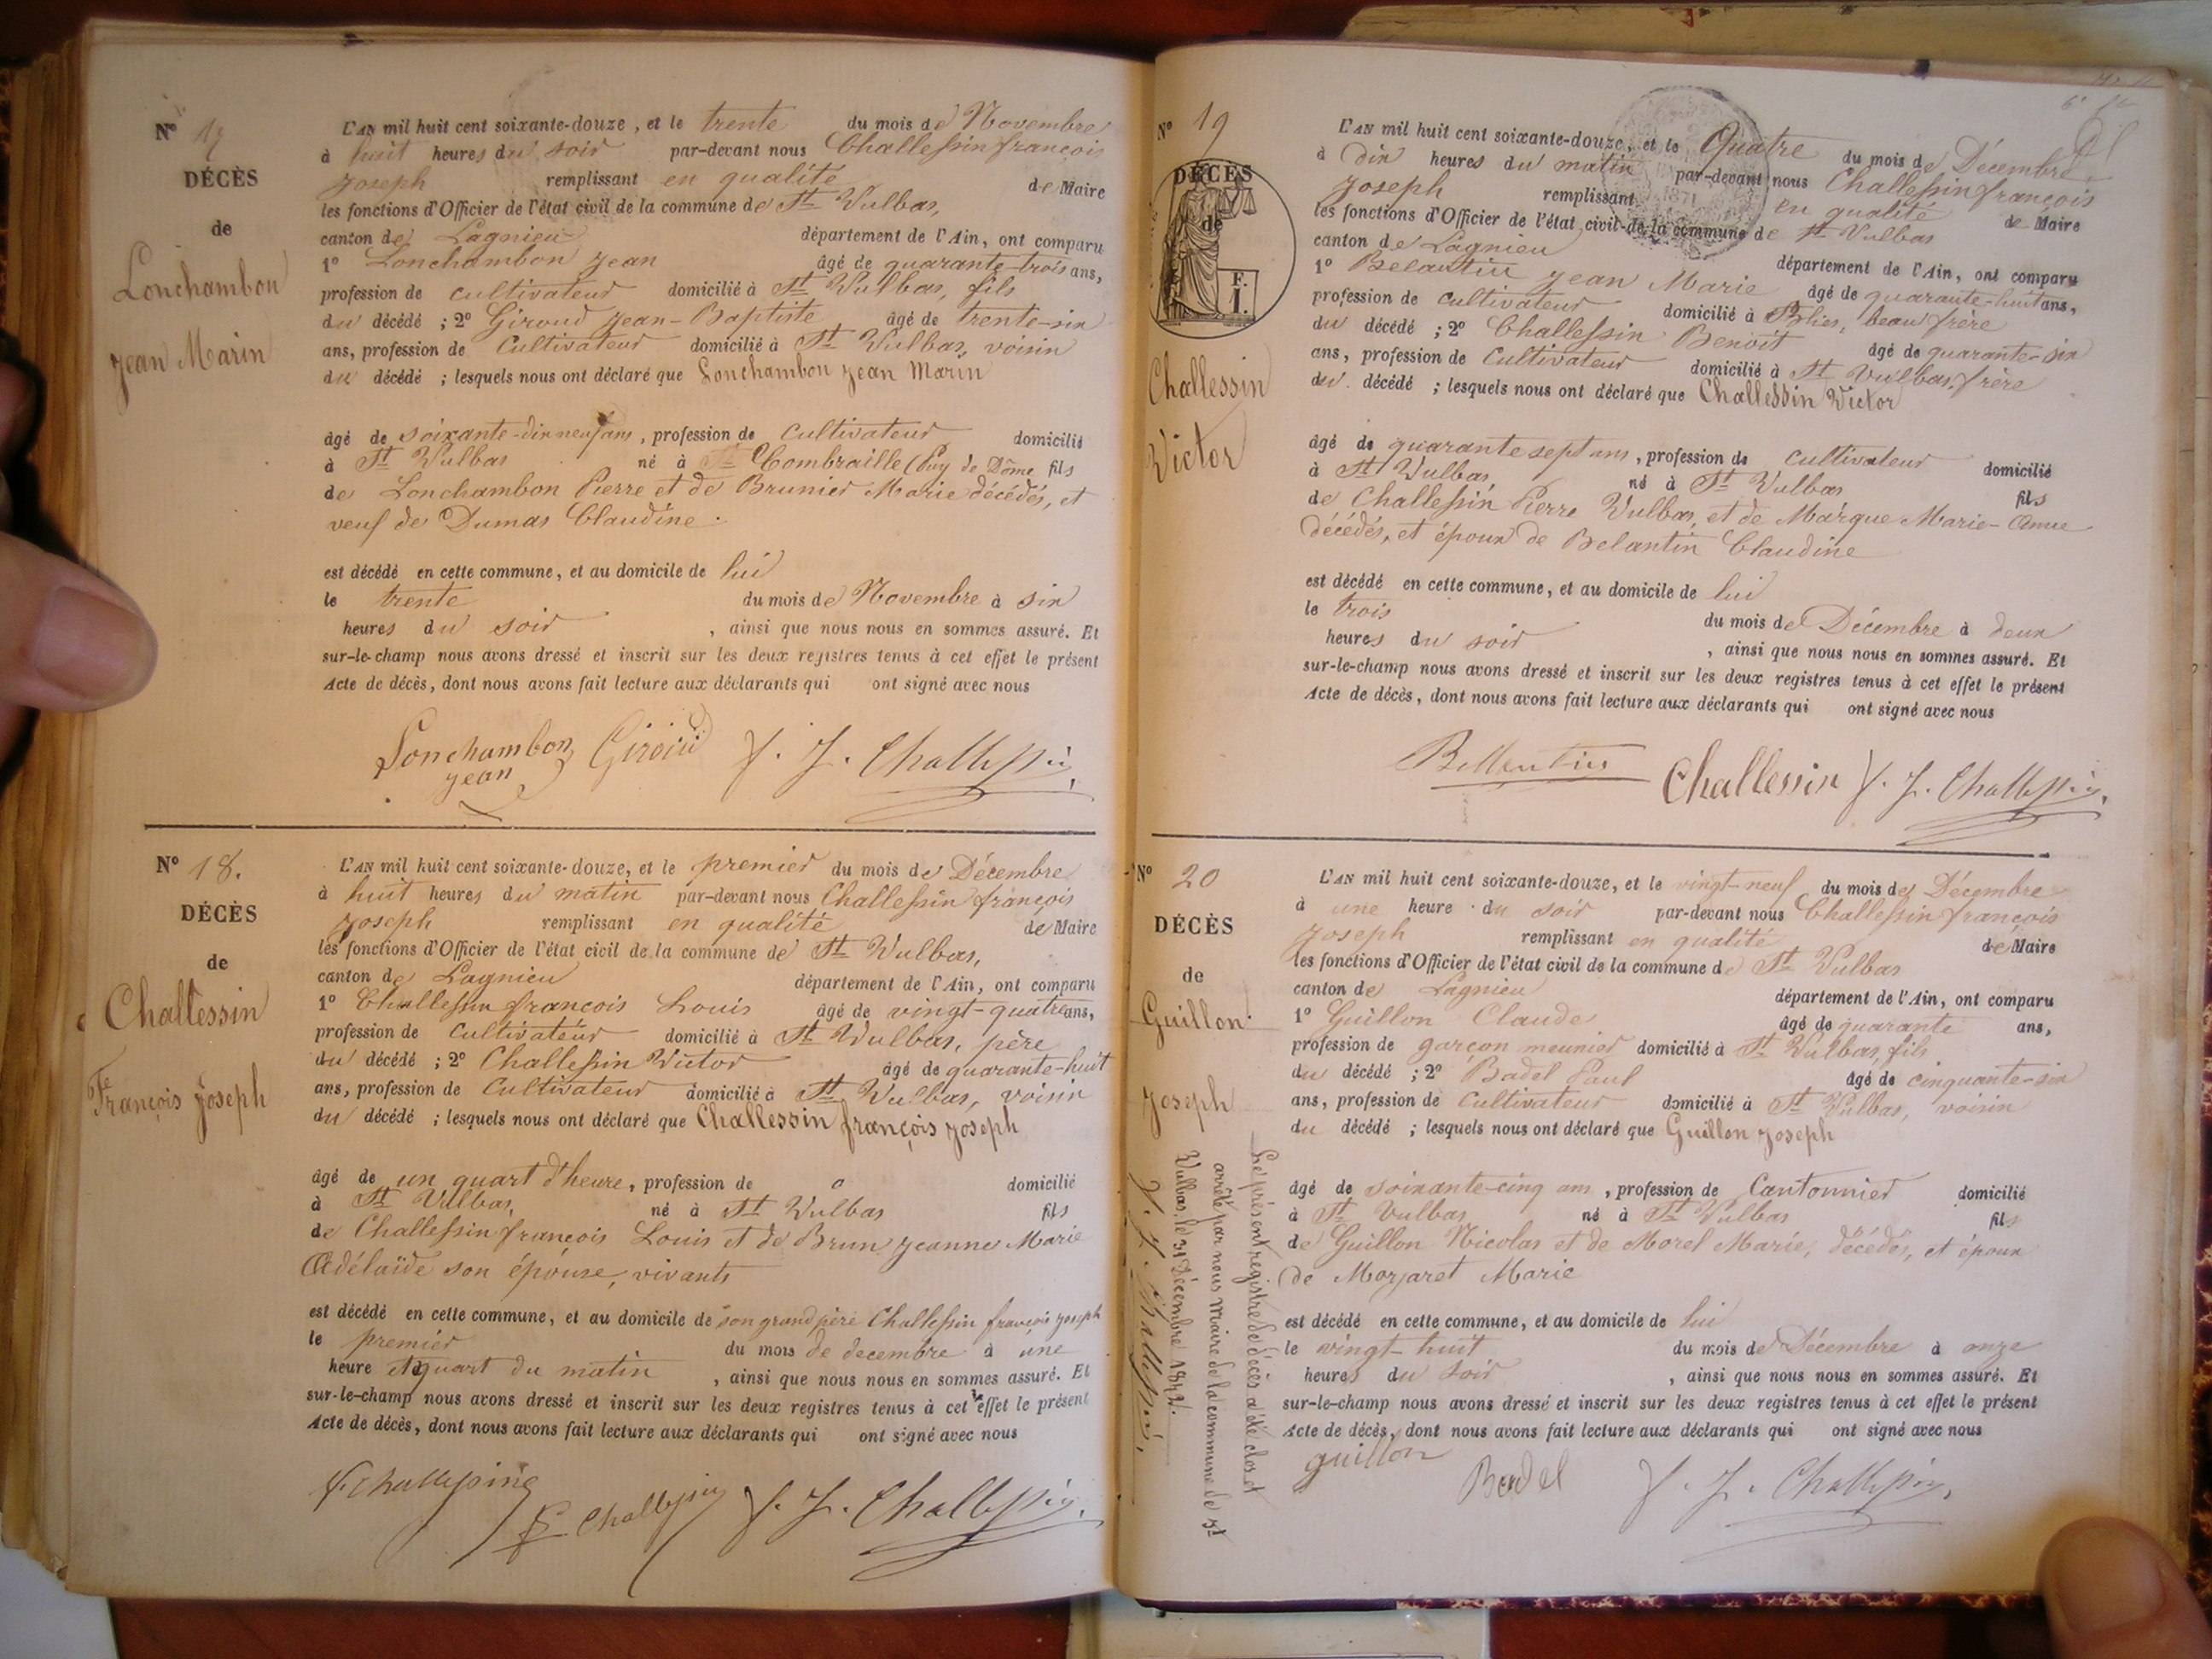 N° 17
DÉCÈS
de
Lonchambon
Jean Marin
L'AN mil huit cent soixante-douze, et le trente du mois de Novembre
à huit heures du soir par-devant nous Challessin françois
Joseph remplissant en qualité de Maire
les fonctions d'Officier de l'état civil de la commune de St Vulbas,
canton de Lagnieu département de l'Ain, ont comparu
1° Lonchambon Jean âgé de quarante-trois ans,
profession de cultivateur domicilié à St Vulbas, fils
du décédé ; 2° Giroud Jean-Baptiste âgé de trente-six
ans, profession de Cultivateur domicilié à St Vulbas, voisin
du décédé ; lesquels nous ont déclaré que Lonchambon Jean Marin
âgé de soixante-dix neuf ans, profession de Cultivateur domicilié
à St Vulbas né à St Combraille (Puy de Dôme fils
de Lonchambon Pierre et de Brunier Marie décédés, et
veuf de Dumas Claudine.
est décédé en cette commune, et au domicile de lui
le trente du mois de Novembre à six
heures du soir, ainsi que nous nous en sommes assuré. Et
sur-le-champ nous avons dressé et inscrit sur les deux registres tenus à cet effet le présent
Acte de décès, dont nous avons fait lecture aux déclarants qui ont signé avec nous
Lonchambon Giroud F. J. Challessin
Jean
N° 18.
DÉCÈS
de
Challessin
François Joseph
L'AN mil huit cent soixante-douze, et le premier du mois de Décembre
à huit heures du matin par-devant nous Challessin françois
Joseph remplissant en qualité de Maire
les fonctions d'Officier de l'état civil de la commune de St Vulbas,
canton de Lagnieu département de l'Ain, ont comparu
1° Challessin françois Louis âgé de vingt-quatre ans,
profession de Cultivateur domicilié à St Vulbas, père
du décédé ; 2° Challessin Victor âgé de quarante-huit
ans, profession de Cultivateur domicilié à St Vulbas, voisin
du décédé ; lesquels nous ont déclaré que Challessin françois Joseph
âgé de un quart d'heure, profession de domicilié
à St Vulbas, né à St Vulbas fils
de Challessin françois Louis et de Brun Jeanne Marie
Adélaïde son épouse, vivants
est décédé en cette commune, et au domicile de son grand père Challessin françois Joseph
le premier du mois de décembre à une
heure et quart du matin, ainsi que nous nous en sommes assuré. Et
sur-le-champ nous avons dressé et inscrit sur les deux registres tenus à cet effet le présent
Acte de décès, dont nous avons fait lecture aux déclarants qui ont signé avec nous
Challessin F. J. Challessin
N° 19
DÉCÈS
de
F.
I.
Challessin
Victor
L'AN mil huit cent soixante-douze, et le Quatre du mois de Décembre
à dix heures du matin par-devant nous Challessin françois
Joseph remplissant en qualité de Maire
les fonctions d'Officier de l'état civil de la commune de St Vulbas
canton de Lagnieu département de l'Ain, ont comparu
1° Belantin Jean Marie âgé de quarante-huit ans,
profession de Cultivateur domicilié à Blies, beau frère
du décédé ; 2° Challessin Benoit âgé de quarante-six
ans, profession de Cultivateur domicilié à St Vulbas, frère
du décédé ; lesquels nous ont déclaré que Challessin Victor
âgé de quarante sept ans, profession de Cultivateur domicilié
à St Vulbas, né à St Vulbas fils
de Challessin Pierre Vulbas, et de Marque Marie-Anne
décédés, et époux de Belantin Claudine
est décédé en cette commune, et au domicile de lui
le trois du mois de Décembre à deux
heures du soir, ainsi que nous nous en sommes assuré. Et
sur-le-champ nous avons dressé et inscrit sur les deux registres tenus à cet effet le présent
Acte de décès, dont nous avons fait lecture aux déclarants qui ont signé avec nous
Challessin F. J. Challessin
N° 20
DÉCÈS
de
Guillon
Joseph
L'AN mil huit cent soixante-douze, et le vingt-neuf du mois de Décembre
à une heure du soir par-devant nous Challessin françois
Joseph remplissant en qualité de Maire
les fonctions d'Officier de l'état civil de la commune de St Vulbas
canton de Lagnieu département de l'Ain, ont comparu
1° Guillon Claude âgé de quarante ans,
profession de garçon meunier domicilié à St Vulbas, fils
du décédé ; 2° Badel Paul âgé de cinquante-six
ans, profession de Cultivateur domicilié à St Vulbas, voisin
du décédé ; lesquels nous ont déclaré que Guillon Joseph
âgé de soixante-cinq ans, profession de Cantonnier domicilié
à St Vulbas né à St Vulbas fils
de Guillon Nicolas et de Morel Marie, décédés, et époux
de Morjaret Marie
est décédé en cette commune, et au domicile de lui
le vingt-huit du mois de Décembre à onze
heures du soir, ainsi que nous nous en sommes assuré. Et
sur-le-champ nous avons dressé et inscrit sur les deux registres tenus à cet effet le présent
Acte de décès, dont nous avons fait lecture aux déclarants qui ont signé avec nous
guillon Badel F. J. Challessin
Le présent registre de décès a été clos et
arrêté par nous Maire de la commune de St
Vulbas, le 31 Décembre 1872.
F. J. Challessin